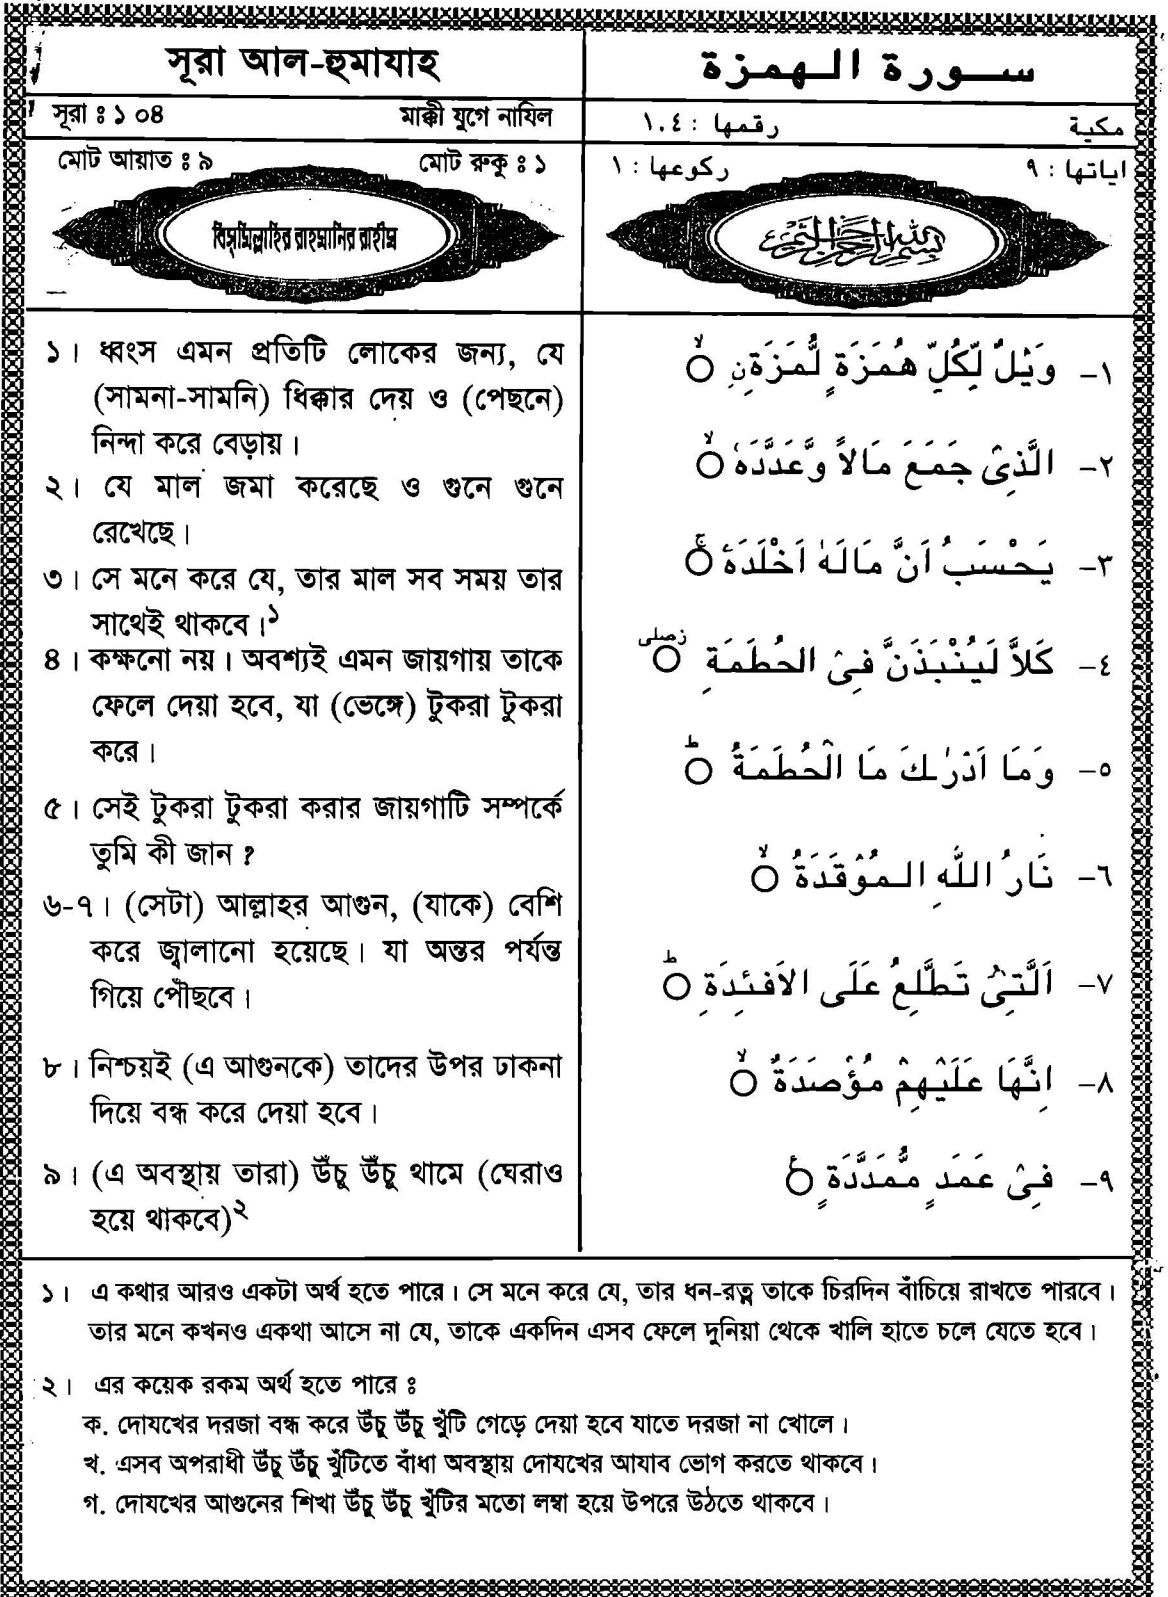 সূরা আল-হুমাযাহ
সূরা ঃ ১০৪ মাক্কী যুগে নাযিল
মোট আয়াত ঃ ৯ মোট রুকু ঃ ১
বিস্‌মিল্লাহির রাহমানির রাহীম
১। ধ্বংস এমন প্রতিটি লোকের জন্য, যে
(সামনা-সামনি) ধিক্কার দেয় ও (পেছনে)
নিন্দা করে বেড়ায়।
২। যে মাল জমা করেছে ও গুনে গুনে
রেখেছে।
৩। সে মনে করে যে, তার মাল সব সময় তার
সাথেই থাকবে।১
৪। কক্ষনো নয়। অবশ্যই এমন জায়গায় তাকে
ফেলে দেয়া হবে, যা (ভেঙ্গে) টুকরা টুকরা
করে।
৫। সেই টুকরা টুকরা করার জায়গাটি সম্পর্কে
তুমি কী জান ?
৬-৭। (সেটা) আল্লাহর আগুন, (যাকে) বেশি
করে জ্বালানো হয়েছে। যা অন্তর পর্যন্ত
গিয়ে পৌঁছবে।
৮। নিশ্চয়ই (এ আগুনকে) তাদের উপর ঢাকনা
দিয়ে বন্ধ করে দেয়া হবে।
৯। (এ অবস্থায় তারা) উঁচু উঁচু থামে (ঘেরাও
হয়ে থাকবে)২
سورة الهمزة
مكية رقمها : ١٠٤
اياتها : ٩ ركوعها : ١
بسم الله الرحمن الرحيم
١- وَيْلٌ لِّكُلِّ هُمَزَةٍ لُّمَزَةِنِ ۙ○
٢- الَّذِىْ جَمَعَ مَالاً وَّعَدَّدَهٗ ۙ○
٣- يَحْسَبُ اَنَّ مَالَهٗ اَخْلَدَهٗ ۚ○
٤- كَلاَّ لَيُنْبَذَنَّ فِىْ الحُطَمَةِ ○ زصلى
٥- وَمَا اَدْرٰىكَ مَا الْحُطَمَةُ ؕ○
٦- نَارُ اللّٰهِ الـمُوْقَدَةُ ۙ○
٧- اَلَّتِىْ تَطَّلِعُ عَلَى الاَفئِدَةِ ؕ○
٨- اِنَّهَا عَلَيْهِمْ مُؤْصَدَةٌ ۙ○
٩- فِىْ عَمَدٍ مُّمَدَّدَةٍ ○ع
১। এ কথার আরও একটা অর্থ হতে পারে। সে মনে করে যে, তার ধন-রত্ন তাকে চিরদিন বাঁচিয়ে রাখতে পারবে।
তার মনে কখনও একথা আসে না যে, তাকে একদিন এসব ফেলে দুনিয়া থেকে খালি হাতে চলে যেতে হবে।
২। এর কয়েক রকম অর্থ হতে পারে ঃ
ক. দোযখের দরজা বন্ধ করে উঁচু উঁচু খুঁটি গেড়ে দেয়া হবে যাতে দরজা না খোলে।
খ. এসব অপরাধী উঁচু উঁচু খুঁটিতে বাঁধা অবস্থায় দোযখের আযাব ভোগ করতে থাকবে।
গ. দোযখের আগুনের শিখা উঁচু উঁচু খুঁটির মতো লম্বা হয়ে উপরে উঠতে থাকবে।